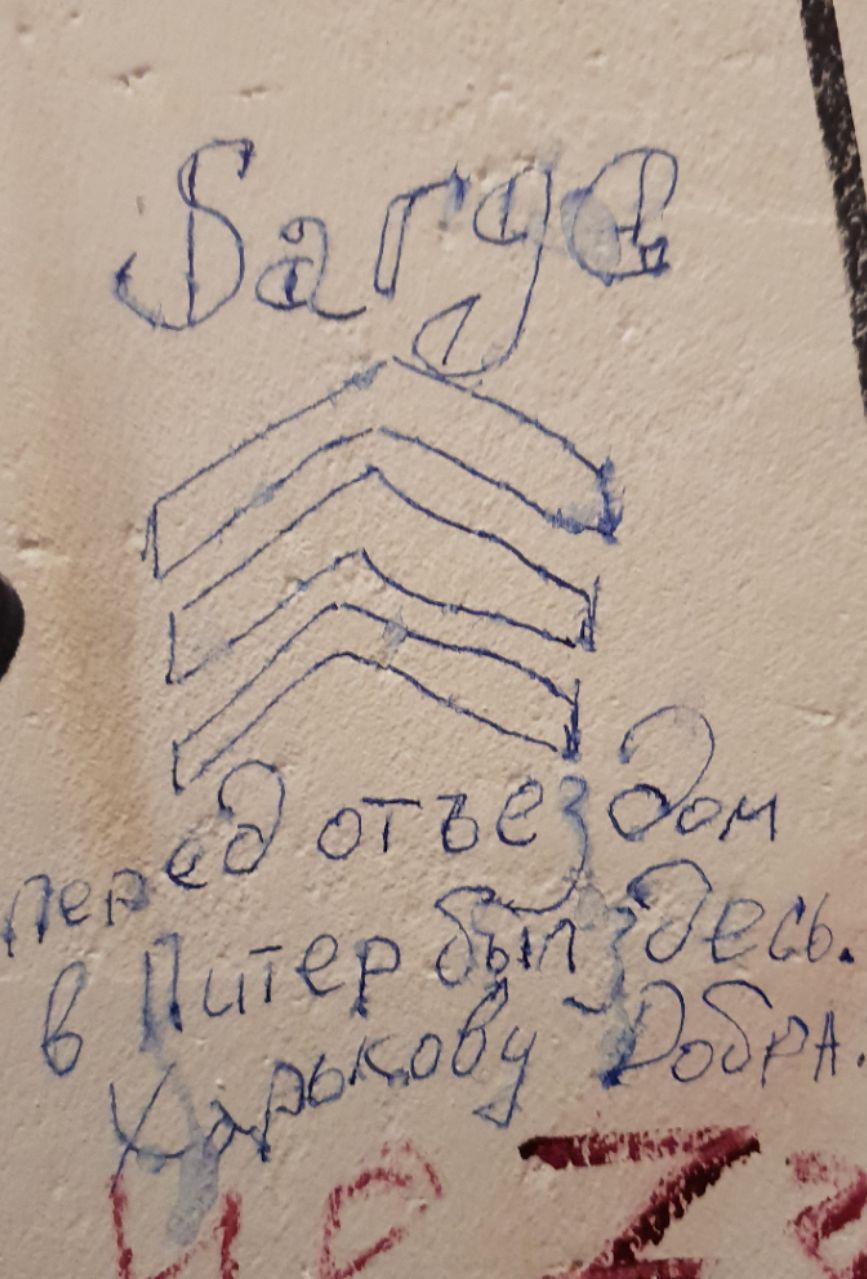 Sarge
перед отъездом
в Питер был здесь.
Харькову Добра.